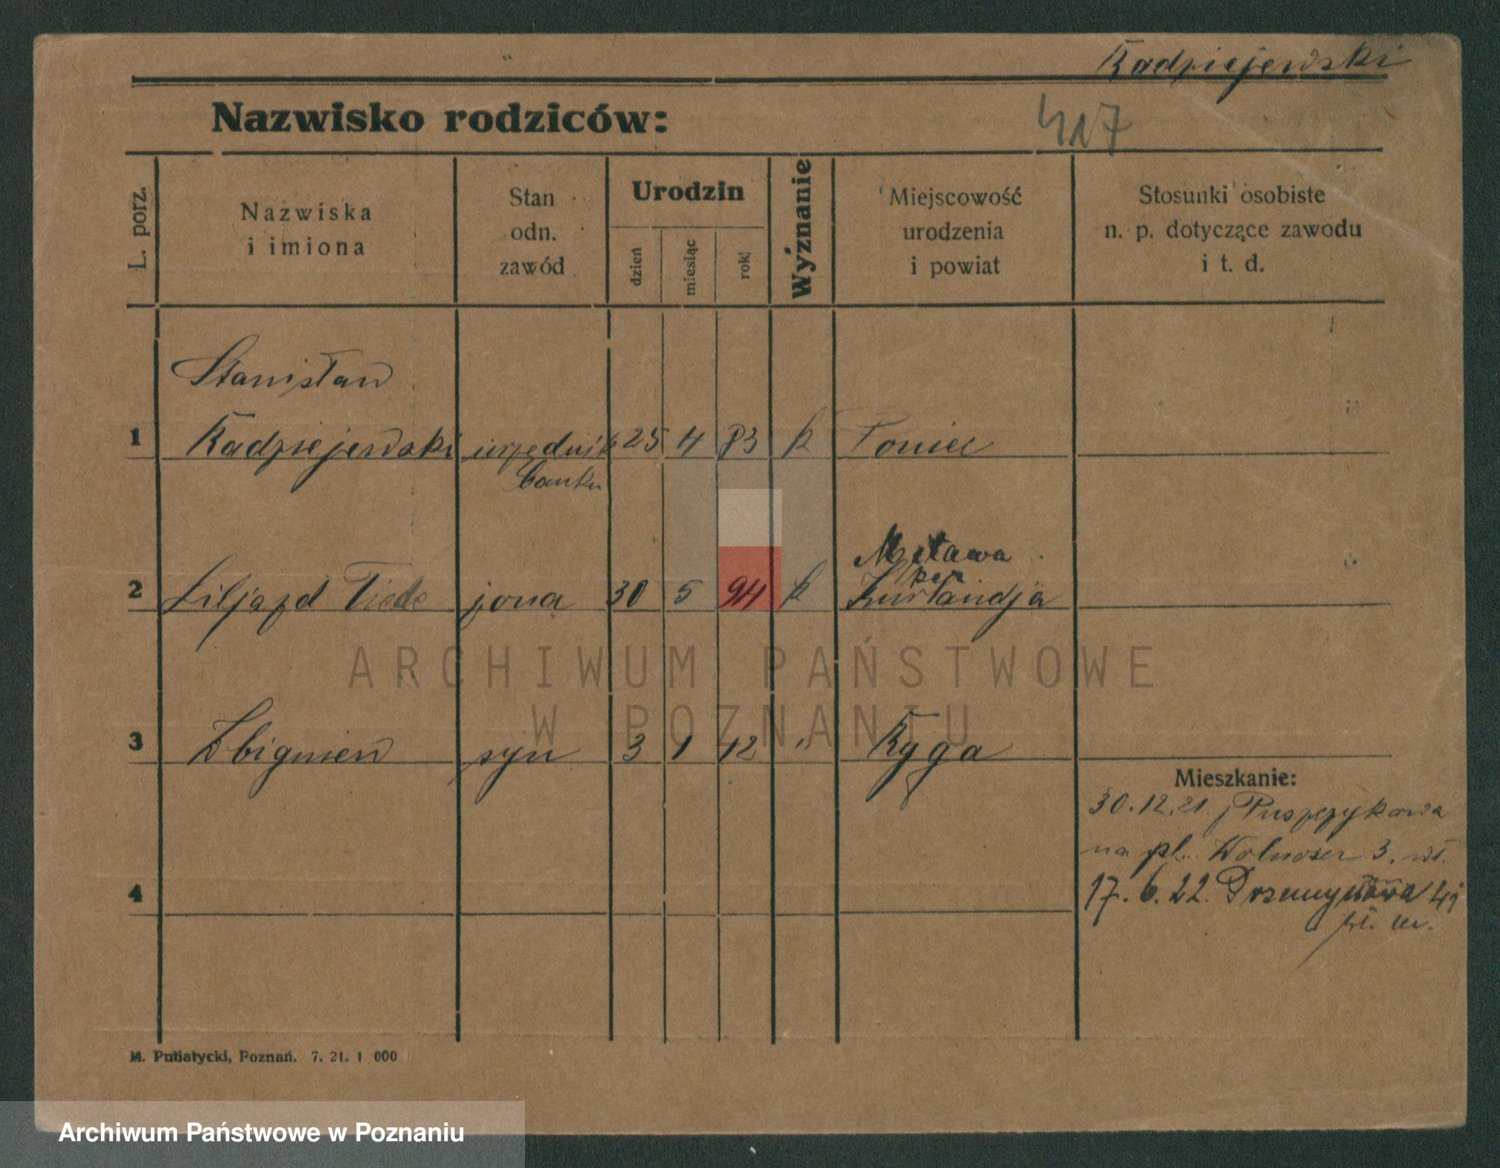 Radziejewski
Nazwisko rodziców:
417
L. porz.
Nazwiska
i imiona
Stan
odn.
zawód
Urodzin
dzień
miesiąc
rok
Wyznanie
Miejscowość
urodzenia
i powiat
Stosunki osobiste
n. p. dotyczące zawodu
i t. d.
Stanisław
1 Radziejewski urzędnik 25 4 83 k Poniec
banku
Mitawa
2 Tiede żona 30 5 94 k Kurlandja
ARCHIWUM PAŃSTWOWE
W POZNANIU
3 Zbigniew syn 3 1 12 " Ryga
Mieszkanie:
30.12.21.
na pl. Wolności 3.
4
17.6.22. 
M. Putiatycki, Poznań. 7. 21. 1 000
Archiwum Państwowe w Poznaniu